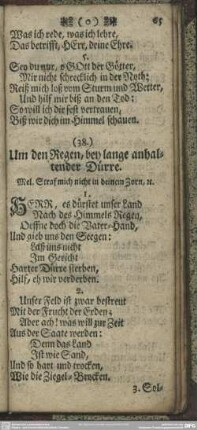 (o) 65
Was ich rede, was ich lehre,
Das betrifft, HErr, deine Ehre.
5.
Sey du nur, o GOtt der Götter,
Mir nicht schrecklich in der Noth;
Reiß mich loß vom Sturm und Wetter,
Und hilf mir biß an den Tod:
So will ich dir fest vertrauen,
Biß wir dich im Himmel schauen.
(38.)
Um den Regen, bey lange anhal-
tender Dürre.
Mel. Straf mich nicht in deinem Zorn, ꝛc.
1.
HERR, es dürstet unser Land
Nach des Himmels Regen,
Oeffne doch die Vater-Hand,
Und gieb uns den Seegen:
Laß uns nicht
Im Gericht
Harter Dürre sterben,
Hilf, eh wir verderben.
2.
Unser Feld ist zwar bestreut
Mit der Frucht der Erden;
Aber ach! was will zur Zeit
Aus der Saate werden:
Denn das Land
Ist wie Sand,
Und so hart und trocken,
Wie die Ziegel-Brocken.
3. Sol-